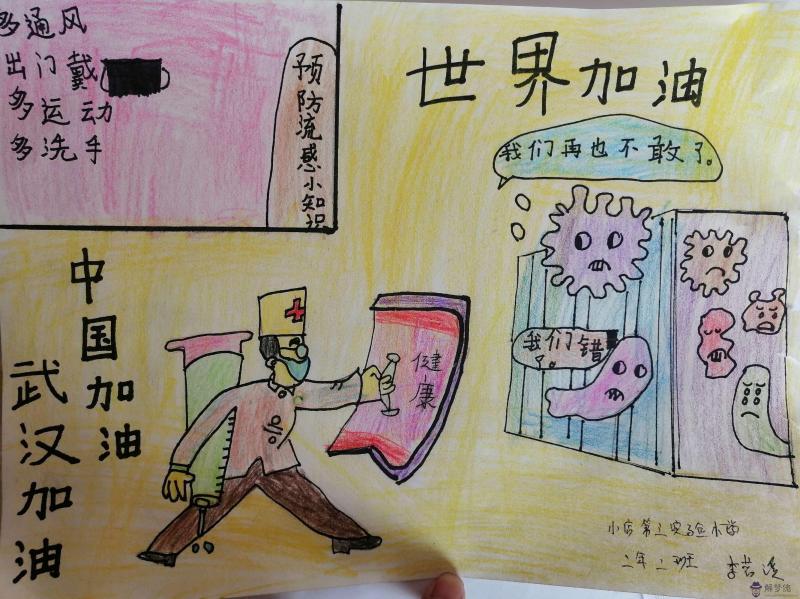 多通风
出门戴
多运动
多洗手
预防流感小知识
世界加油
我们再也不敢了。
我们错了。
中国加油
武汉加油
健康
二年二班
解梦佬